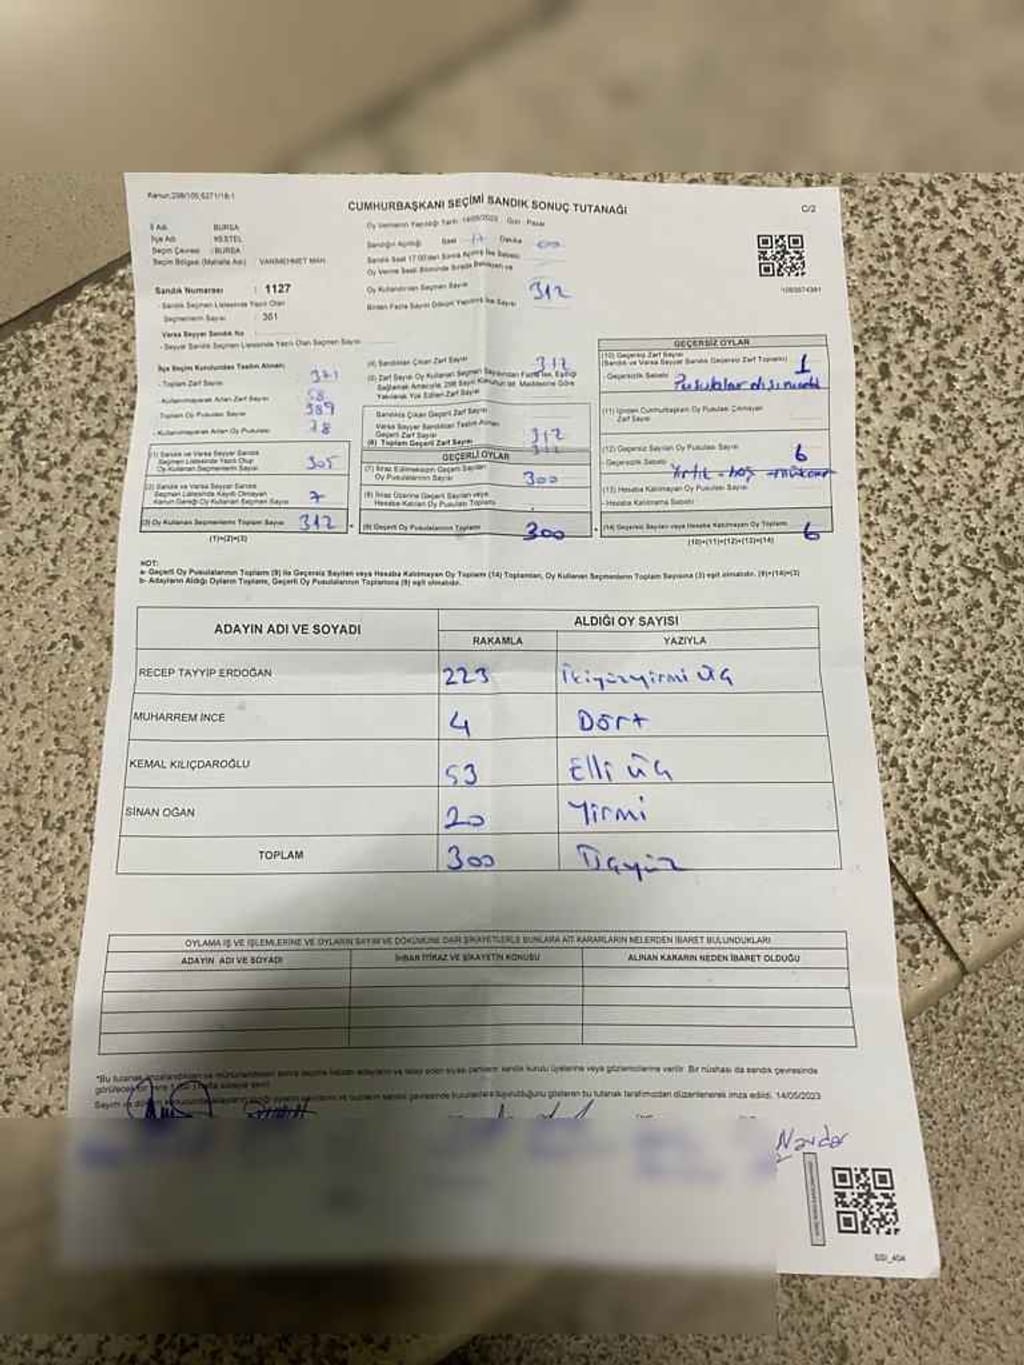 Kanun:298/105;6271/18-1
CUMHURBAŞKANI SEÇİMİ SANDIK SONUÇ TUTANAĞI
C/2
İl Adı BURSA
İlçe Adı KESTEL
Seçim Çevresi : BURSA
Seçim Bölgesi (Mahalle Adı) VANİMEHMET MAH.
Oy Vermenin Yapıldığı Tarih: 14/05/2023 Gün : Pazar
Sandığın Açıldığı Saat 17 Dakika 00
Sandık Saat 17:00'den Sonra Açılmış İse Sebebi
Oy Verme Saati Bitiminde Sırada Bekleyen ve
Oy Kullandırılan Seçmen Sayısı 312
Birden Fazla Sayım Döküm Yapılmış İse Sayısı
Sandık Numarası : 1127
- Sandık Seçmen Listesinde Yazılı Olan
Seçmenlerin Sayısı : 361
Varsa Seyyar Sandık No
- Seyyar Sandık Seçmen Listesinde Yazılı Olan Seçmen Sayısı
İlçe Seçim Kurulundan Teslim Alınan;
- Toplam Zarf Sayısı 371
- Kullanılmayarak Artan Zarf Sayısı 58
Toplam Oy Pusulası Sayısı 389
- Kullanılmayarak Artan Oy Pusulası 78
(1) Sandık ve Varsa Seyyar Sandık
Seçmen Listesinde Yazılı Olup
Oy Kullanan Seçmenlerin Sayısı 305
(2) Sandık ve Varsa Seyyar Sandık
Seçmen Listesinde Kayıtlı Olmayan
Kanun Gereği Oy Kullanan Seçmen Sayısı 7
(3) Oy Kullanan Seçmenlerin Toplam Sayısı 312
(1)+(2)=(3)
(4) Sandıktan Çıkan Zarf Sayısı 312
(5) Zarf Sayısı Oy Kullanan Seçmen Sayısından Fazla İse, Eşitliği
Sağlamak Amacıyla, 298 Sayılı Kanun'un 98. Maddesine Göre
Yakılarak Yok Edilen Zarf Sayısı
Sandıkta Çıkan Geçerli Zarf Sayısı
Varsa Seyyar Sandıktan Teslim Alınan
Geçerli Zarf Sayısı 312
(6) Toplam Geçerli Zarf Sayısı 312
GEÇERLİ OYLAR
(7) İtiraz Edilmeksizin Geçerli Sayılan
Oy Pusulalarının Sayısı 300
(8) İtiraz Üzerine Geçerli Sayılan veya
Hesaba Katılan Oy Pusulası Toplamı
(9) Geçerli Oy Pusulalarının Toplamı 300
GEÇERSİZ OYLAR
(10) Geçersiz Zarf Sayısı
(Sandık ve Varsa Seyyar Sandık Geçersiz Zarf Toplamı) 1
- Geçersizlik Sebebi Pusulalar
(11) İçinden Cumhurbaşkanı Oy Pusulası Çıkmayan
Zarf Sayısı
(12) Geçersiz Sayılan Oy Pusulası Sayısı 6
- Geçersizlik Sebebi Yırtık - boş
(13) Hesaba Katılmayan Oy Pusulası Sayısı
- Hesaba Katılmama Sebebi
(14) Geçersiz Sayılan veya Hesaba Katılmayan Oy Toplamı 6
(10)+(11)+(12)+(13)=(14)
NOT:
a- Geçerli Oy Pusulalarının Toplamı (9) ile Geçersiz Sayılan veya Hesaba Katılmayan Oy Toplamı (14) Toplamları, Oy Kullanan Seçmenlerin Toplam Sayısına (3) eşit olmalıdır. (9)+(14)=(3)
b- Adayların Aldığı Oyların Toplamı, Geçerli Oy Pusulalarının Toplamına (9) eşit olmalıdır.
ADAYIN ADI VE SOYADI ALDIĞI OY SAYISI
RAKAMLA YAZIYLA
RECEP TAYYİP ERDOĞAN 223 İkiyüzyirmi üç
MUHARREM İNCE 4 Dört
KEMAL KILIÇDAROĞLU 53 Elli üç
SİNAN OĞAN 20 Yirmi
TOPLAM 300 Üçyüz
OYLAMA İŞ VE İŞLEMLERİNE VE OYLARIN SAYIM VE DÖKÜMÜNE DAİR ŞİKAYETLERLE BUNLARA AİT KARARLARIN NELERDEN İBARET BULUNDUKLARI
ADAYIN ADI VE SOYADI İHBAR İTİRAZ VE ŞİKAYETİN KONUSU ALINAN KARARIN NEDEN İBARET OLDUĞU
14/05/2023